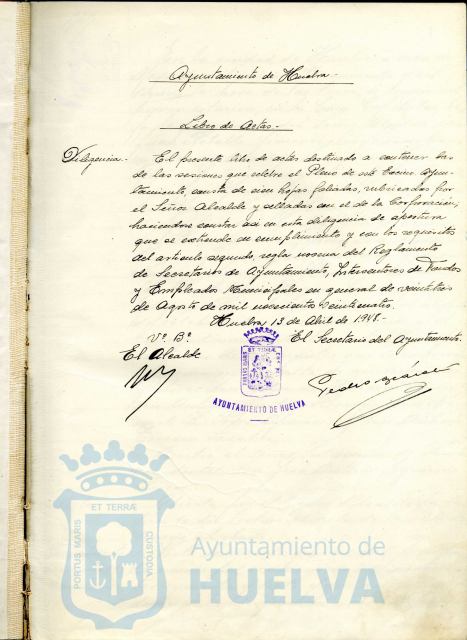 Ayuntamiento de Huelva.-
Libro de Actas.-
Diligencia.- El presente libro de actas destinado a contener las
de las sesiones que celebre el Pleno de este Excmo. Ayun-
tamiento, consta de cien hojas foliadas, rubricadas por
el Señor Alcalde y selladas con el de la Corporación;
haciéndose constar así en esta diligencia de apertura
que se extiende en cumplimiento y con los requisitos
del artículo segundo, regla novena del Reglamento
de Secretarios de Ayuntamiento, Interventores de Fondos
y Empleados Municipales en general de veintitres
de Agosto de mil novecientos veinticuatro.
Huelva 13 de Abril de 1948.-
Vº. Bº.
El Secretario del Ayuntamiento.
El Alcalde
ET TERRÆ
PORTUS MARIS
AYUNTAMIENTO DE HUELVA
Pedro
ET TERRÆ
PORTUS MARIS
CUSTODIA
Ayuntamiento de
HUELVA